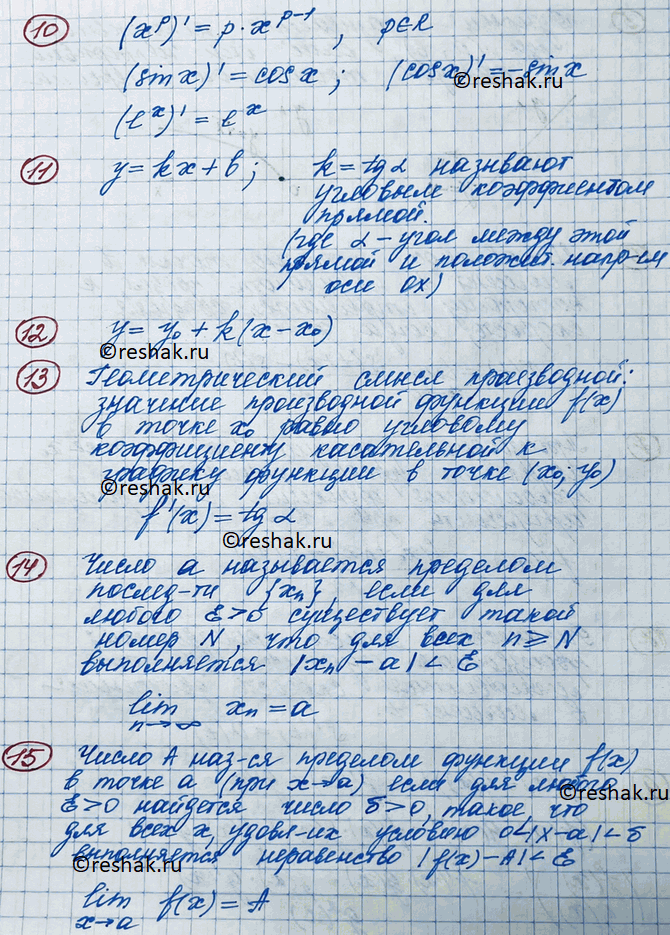 10 (x^p)' = p · x^(p-1), p∈R
(sin x)' = cos x; (cos x)' = -sin x
(e^x)' = e^x
11 y = kx + b; k = tg α называют
угловым коэффиентом
прямой.
(где α - угол между этой
прямой и положит. напр-ем
оси ox)
12 y = y₀ + k(x - x₀)
©reshak.ru
13 Геометрический смысл производной:
значение производной функции f(x)
в точке x₀ равно угловому
коэффициенту касательной к
графику функции в точке (x₀; y₀)
©reshak.ru
f'(x) = tg α
©reshak.ru
14 Число a называется пределом
послед-ти {xₙ}, если для
любого ε>0 существует такой
номер N, что для всех n ≥ N
выполняется |xₙ - a| < ε
lim xₙ = a
n→∞
15 Число A наз-ся пределом функции f(x)
в точке a (при x→a) если для любого
ε>0 найдется число δ>0, такое, что
для всех x, удовл-их условию 0<|x-a|<δ
выполняется неравенство |f(x) - A| < ε
©reshak.ru
lim f(x) = A
x→a